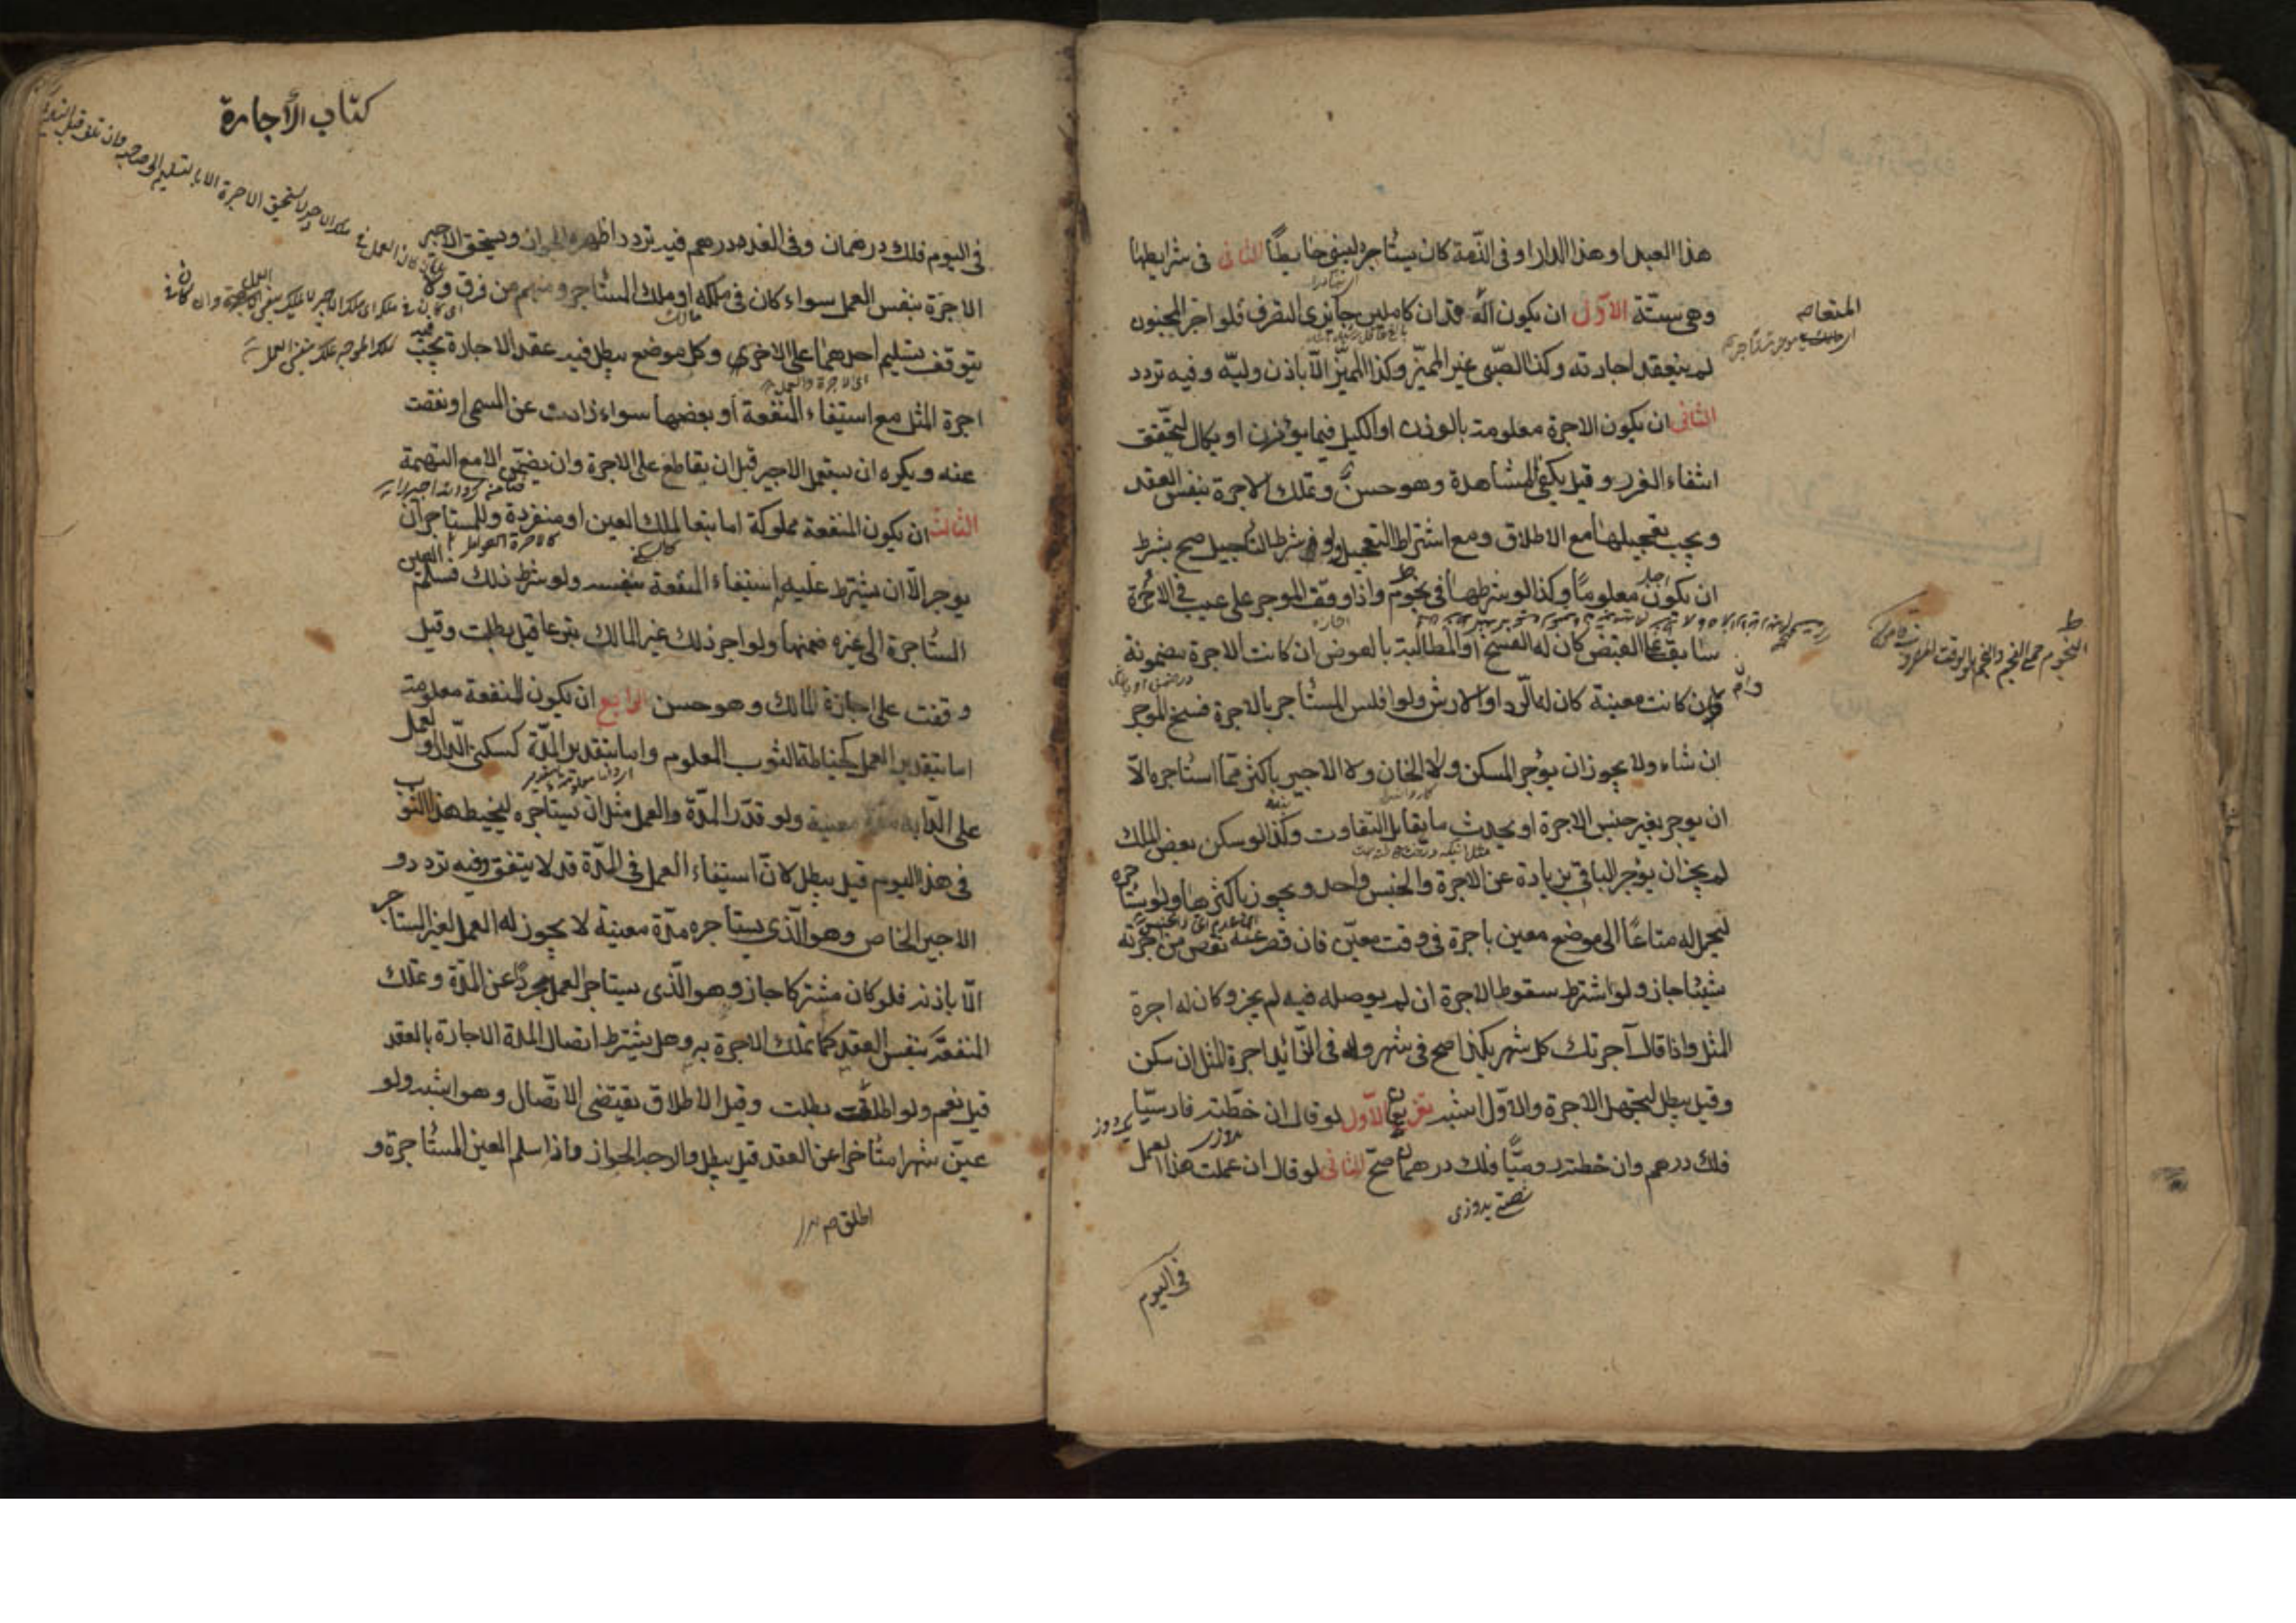 هذا العبد او هذا الدار او فى الذّمة كان يستأجره ليبنى حايطًا الثانى فى شرايطها
وهى ستّة الاوّل ان يكون المتعاقدان كاملين جايزى التصرف فلو اجر المجنون
لم ينعقد اجارته وكذا الصّبى غير المميّز وكذا المميّز الّا باذن وليّه وفيه تردد
الثانى ان يكون الاجرة معلومة بالوزن او الكيل فيما يوزن او يكال ليتحقق
انتفاء الغرر وقيل يكفى المشاهدة وهو حسن وتملك الاجرة بنفس العقد
ويجب تعجيلها مع الاطلاق ومع اشتراط التعجيل ولو شرط التاجيل صح بشرط
ان يكون معلومًا وكذا لو شرطها فى نجوم واذا وقف الموجر على عيب فى الاجرة
سابق على القبض كان له الفسخ او المطالبة بالعوض ان كانت الاجرة مضمونة
وان كانت معينة كان له الرد او الارش ولو افلس المستأجر بالاجرة فسخ الموجر
ان شاء ولا يجوز ان يوجر المسكن ولا الخان ولا الاجير باكثر ممّا استأجره الّا
ان يوجر بغير جنس الاجرة او يحدث ما يقابل التفاوت وكذا لو سكن بعض الملك
لم يجز ان يؤجر الباقى بزيادة عن الاجرة والجنس واحد ويجوز باكثرها ولو استأجره
ليحمل له متاعًا الى موضع معين باجرة فى وقت معيّن فان قصر عنه نقص من اجرته
شيئا جاز ولو اشترط سقوط الاجرة ان لم يوصله فيه لم يجز وكان له اجرة
المثل واذا قال آجرتك كل شهر بكذا صح فى شهر وله فى الزّائد اجرة المثل ان سكن
وقيل يبطل لتجهل الاجرة والاوّل اشبه تفريعان الاوّل لو قال ان خطته فارسيّا
فلك درهم وان خطته روميًّا فلك درهمان صحّ الثانى لو قال ان عملت هذا العمل
فى اليوم
كتاب الأجارة
فى اليوم فلك درهمان وفى الغد درهم فيه تردد اظهره الجواز ويستحق الاجير
الاجرة بنفس العمل سواء كان فى ملكه او ملك المستأجر ومنهم من فرق ولا
يتوقف تسليم احدهما على الاخرى وكل موضع يبطل فيه عقد الاجارة يجب فيه
اجرة المثل مع استيفاء المنفعة او بعضها سواء زادت عن المسمى او نقصت
عنه ويكره ان يستعمل الاجير قبل ان يقاطع على الاجرة وان يضمّن الا مع التهمة
الثالث ان يكون المنفعة مملوكة اما تبعا لملك العين او منفردة وللمستاجر ان
يوجر الّا ان يشترط عليه استيفاء المنفعة بنفسه ولو شرط ذلك فسلّم العين
المستأجرة الى غيره ضمنها ولو اجر ذلك غير المالك تبرعا قيل بطلت وقيل
وقفت على اجازة المالك وهو حسن الرابع ان يكون المنفعة معلومة
اما بتقدير العمل كخياطة الثوب المعلوم واما بتقدير المدّة كسكنى الدار او العمل
على الدّابة مدّة معينة ولو قدّر المدّة والعمل مثل ان يستأجره ليخيط هذا الثوب
فى هذا اليوم قيل يبطل لانّ استيفاء العمل فى المدّة قد لا يتفق وفيه تردد و
الاجير الخاص وهو الّذى يستأجره مدّة معينة لا يجوز له العمل لغير المستأجر
الّا باذنه فلو كان مشتركا جاز وهو الّذى يستاجر لعمل مجرد عن المدّة وتملك
المنفعة بنفس العقد كما تملك الاجرة به وهل يشترط اتصال المدة الاجارة بالعقد
قيل نعم ولو اطلقت بطلت وقيل الاطلاق يقتضى الاتّصال وهو اشبه ولو
عيّن شهرا متأخرا عن العقد قيل يبطل والاوجه الجواز واذا سلم العين المستأجرة و